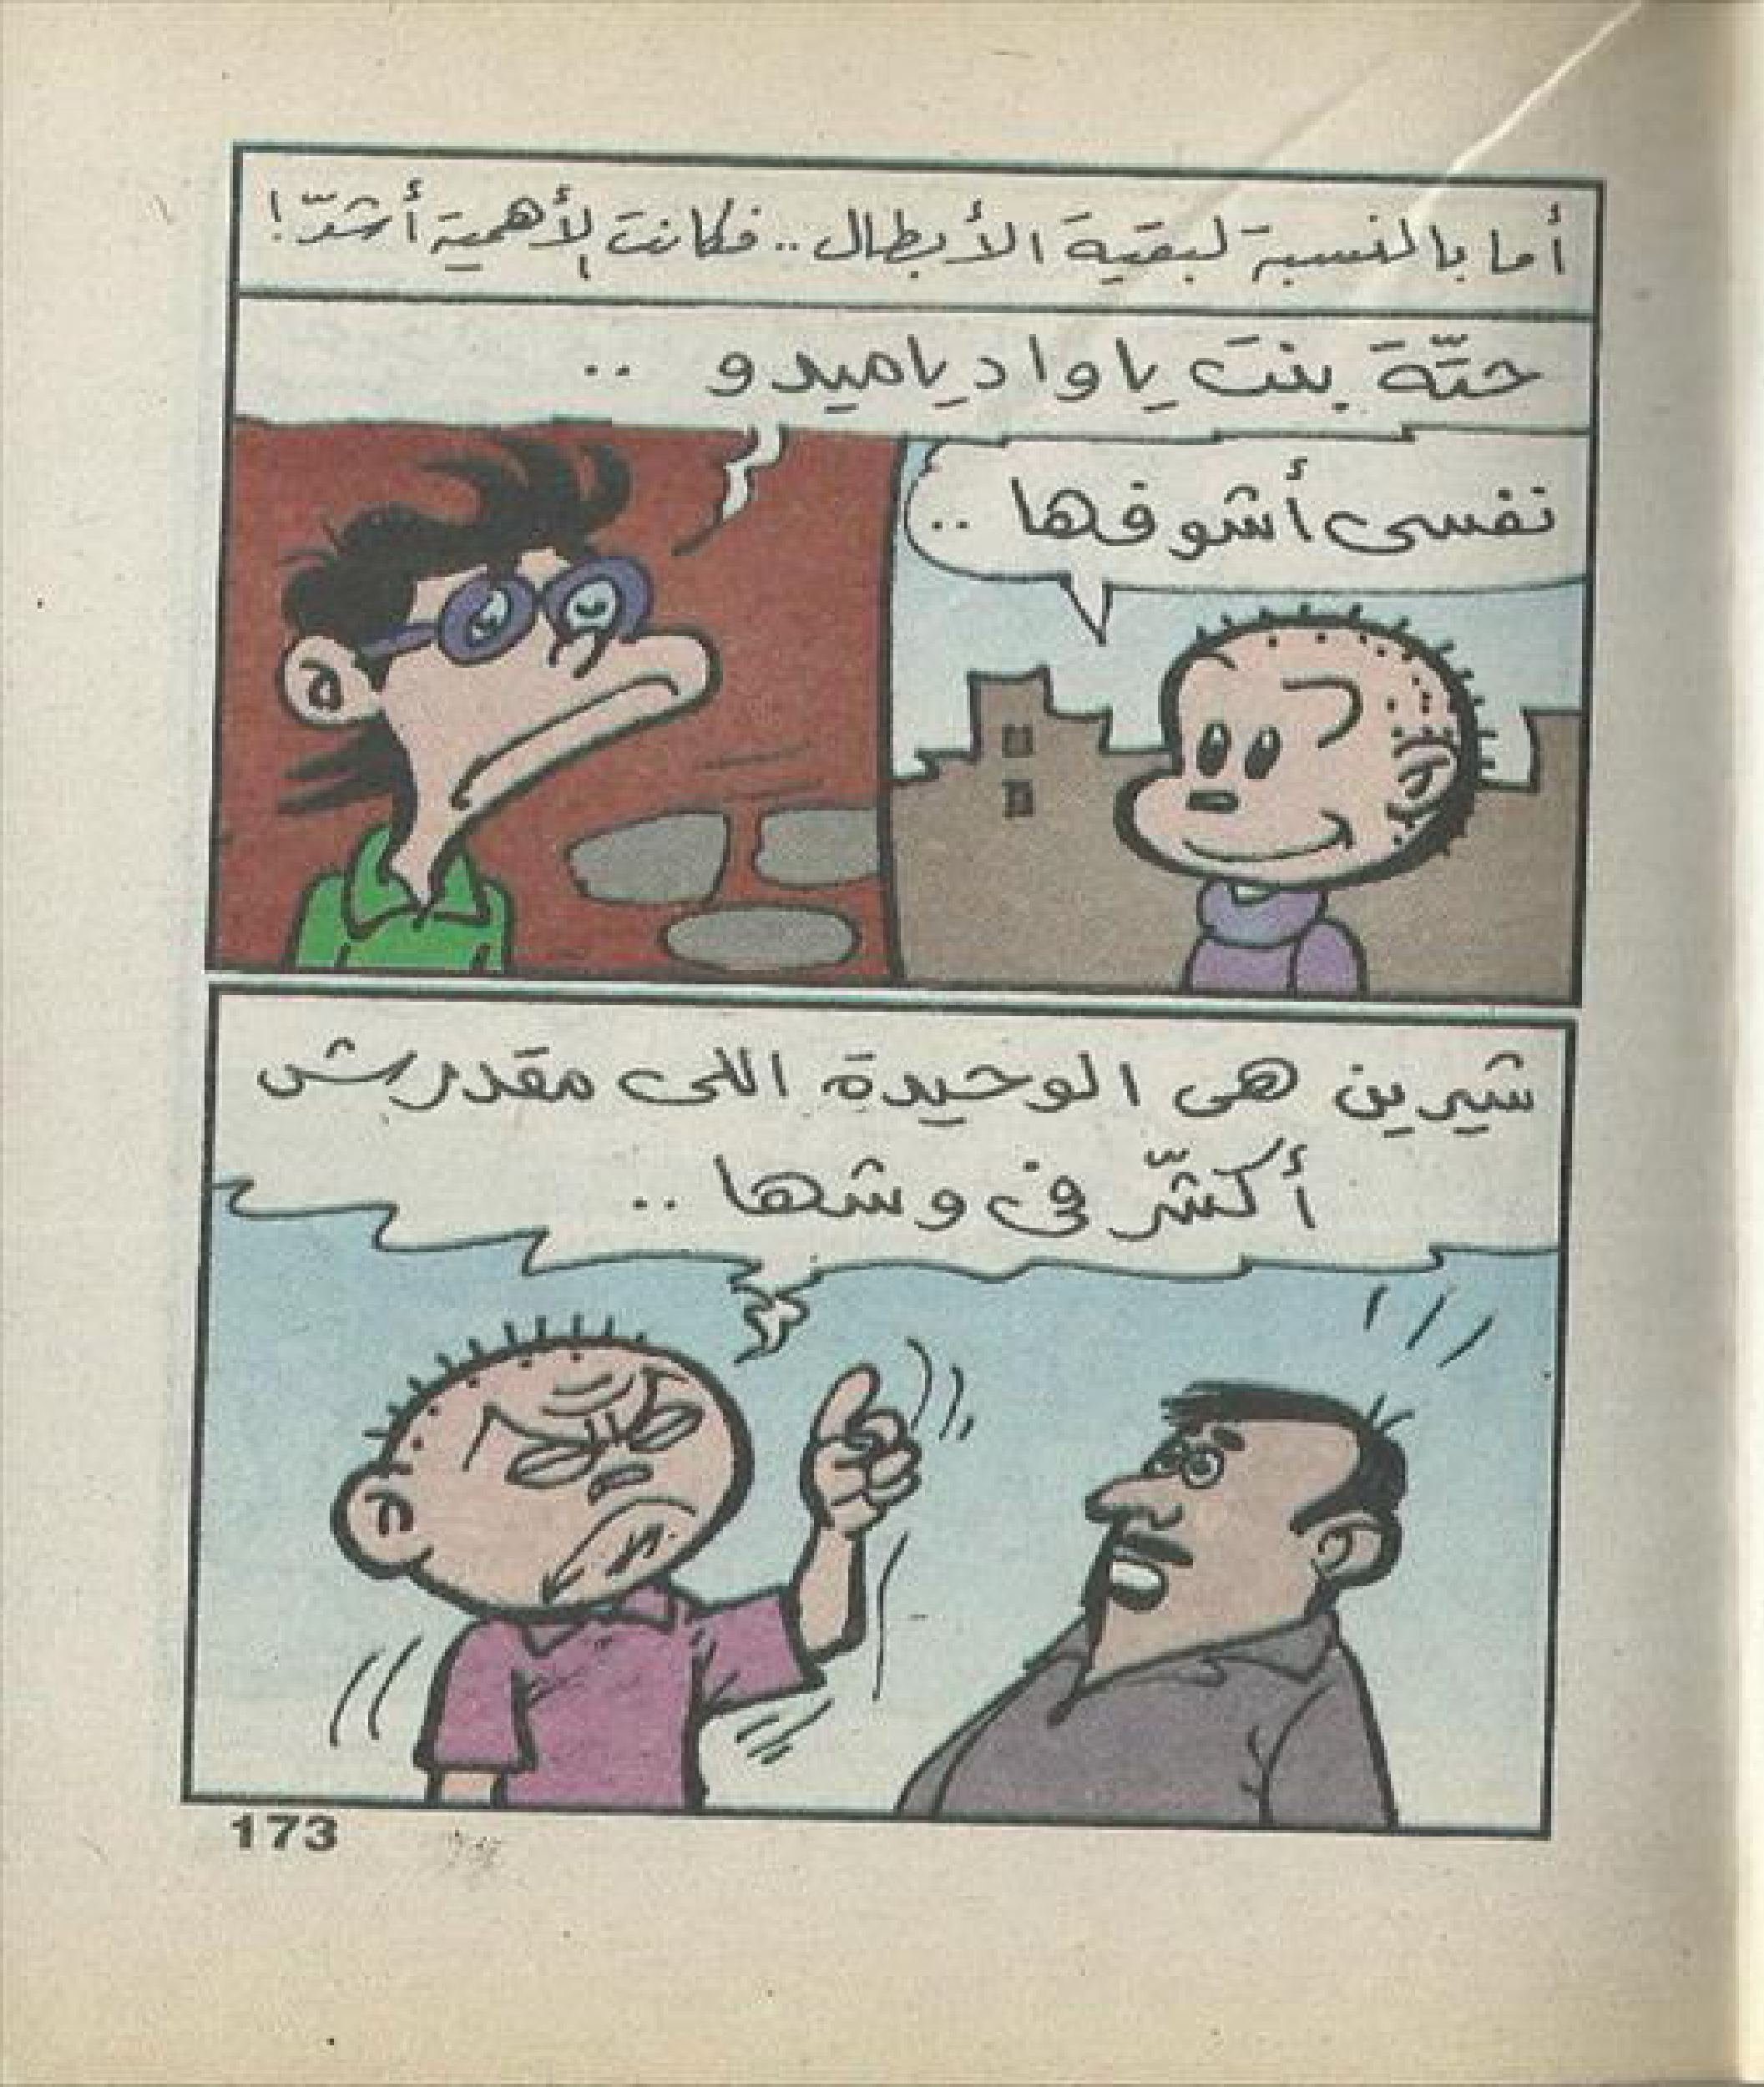 أما بالنسبة لبقية الأبطال .. فكانت لأهمية أشدّ !
حتّة بنت يا واد يا ميدو ..
نفسى أشوفها ..
شيرين هى الوحيدة اللى مقدرش
أكشّر فى وشها ..
173